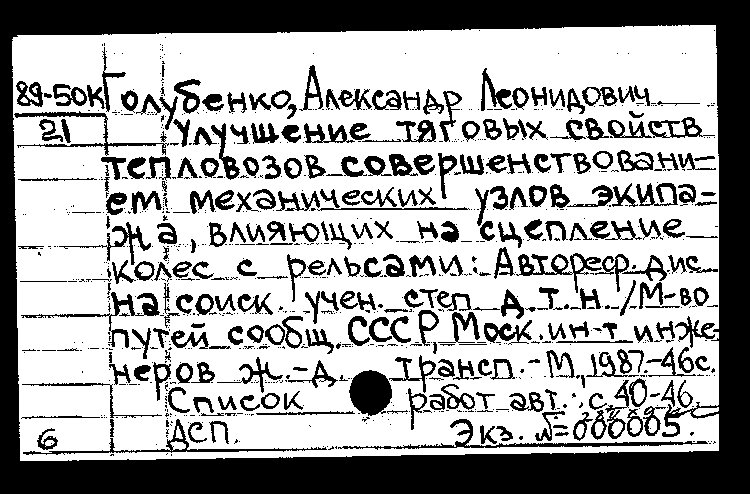 89-50К Голубенко, Александр Леонидович.
21 Улучшение тяговых свойств
тепловозов совершенствовани-
ем механических узлов экипа-
жа, влияющих на сцепление
колес с рельсами: Автореф. дис
на соиск. учен. степ д.т.н./М-во
путей сообщ. СССР, Моск. ин-т инже-
неров ж.-д трансп.-М, 1987-46с.
Список работ авт.: с.40-46.
6 ДСП. Экз. №=000005.